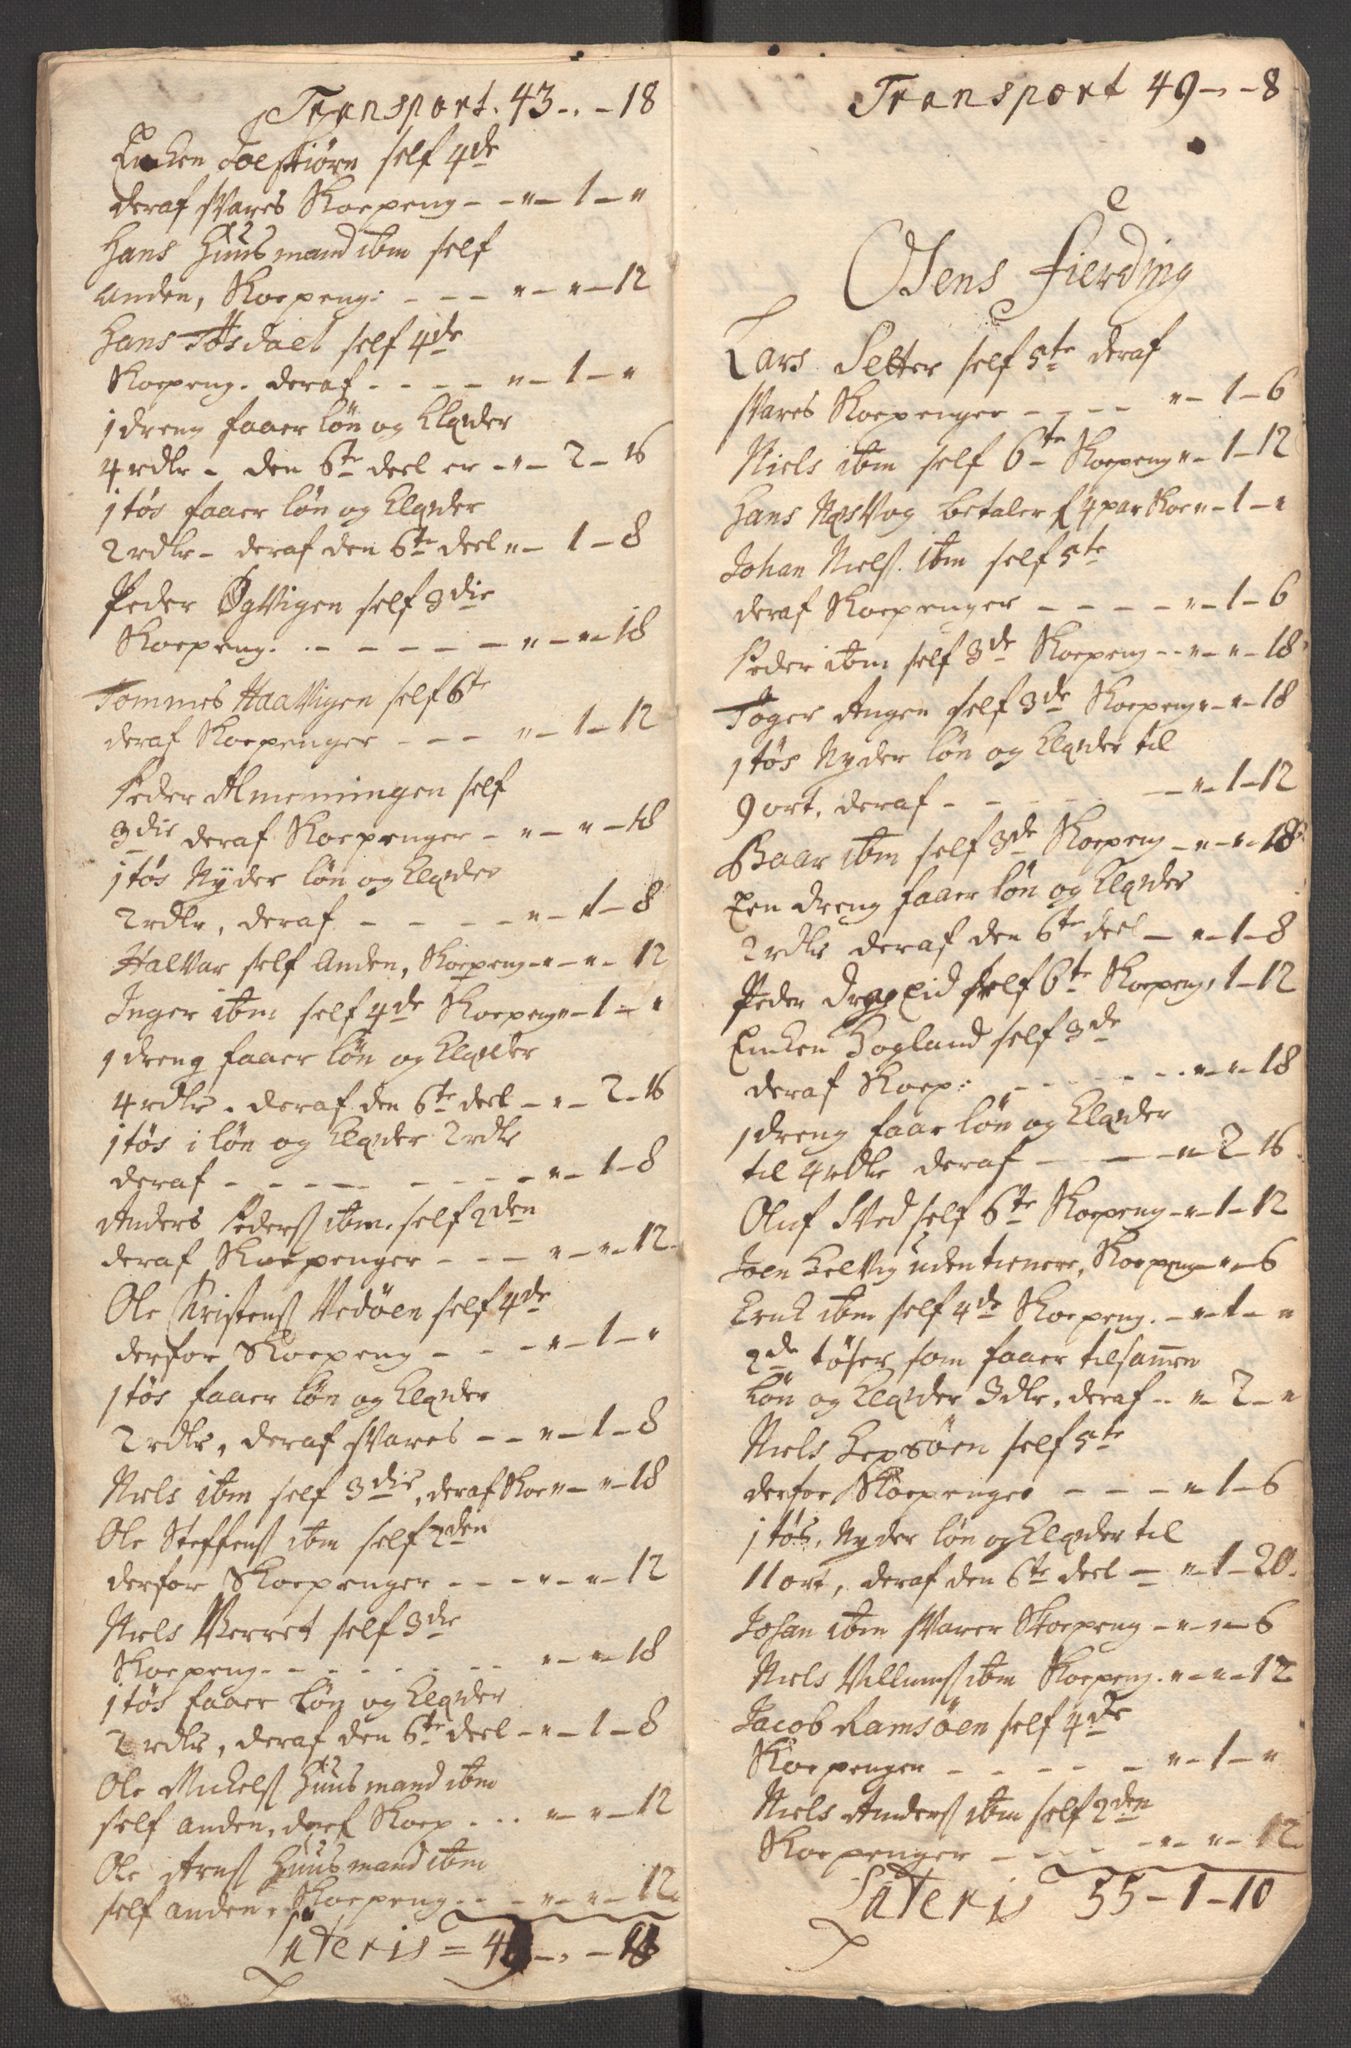 Transport. 43 - „ - 18
Encken Toelkiörn self 4de
deraf svares Skoepeng - - „ - 1 - „
Hans Huusmand ibm self
Anden, Skoepeng: - - - „ - „ - 12
Hans Tosdael self 4de
Skoepeng. deraf - - - - „ - 1 - „
1 dreng faaer Løn og Klæder
4 rdlr - den 6te deel er - „ - 2 - 16
1 tøs faaer Løn og Klæder
2 rdlr - deraf den 6te deel „ - 1 - 8
Peder Øgvigen self 3die
Skoepeng. - - - - - „ - „ - 18
Tommes Haavigen self 6te
deraf Skoepenger - - - „ - 1 - 12
Peder Almenningen self
3die deraf Skoepenger - „ - „ - 18
1 tøs Nyder Løn og Klæder
2 rdlr, deraf - - - - - „ - 1 - 8
Halvar self Anden, Skoepeng - „ - „ - 12
Inger ibm self 4de Skoepeng „ - 1 - „
1 dreng faaer Løn og Klæder
4 rdlr - deraf den 6te deel - „ - 2 - 16
1 tøs i Løn og Klæder 2 rdlr
deraf - - - - - - - - „ - 1 - 8
Anders Peders ibm. self 2den
deraf Skoepenger - - - „ - „ - 12
Ole Kristens Vedöen self 4de
derfor Skoepeng - - - „ - 1 - „
1 tøs faaer Løn og Klæder
2 rdlr, deraf svares - - „ - 1 - 8
Niels ibm self 3die, deraf Skoe „ - „ - 18
Ole Steffens ibm self 2den
derfor Skoepenger - - - „ - „ - 12
Niels Werret self 3die
Skoepeng - - - - - - „ - „ - 18
1 tøs faaer Løn og Klæder
2 rdlr, deraf den 6te deel - „ - 1 - 8
Ole Mickels Huusmand ibm
self anden, deraf Skoep - - - „ - „ - 12
Ole Arns Huusmand ibm
self anden, Skoepeng - - - „ - „ - 12
Lateris = 49 - „ -
Transport 49 - „ - 8
Osens Fierding
Lars Setter self 5te deraf
svares Skoepenger - - - - „ - 1 - 6
Niels ibm self 6te Skoepeng „ - 1 - 12
Hans Næsvog betaler f 4 par Skoe „ - 1 - „
Johan Niels. ibm self 5te
deraf Skoepenger - - - - - „ - 1 - 6
Peder ibm self 3de Skoepeng - - „ - „ - 18
Toger Angen self 3de Skoepeng „ - „ - 18
1 tøs Nyder Løn og Klæder til
9 ort, deraf - - - - - „ - 1 - 12
Baar ibm self 3de Skoepeng - „ - „ - 18
Een dreng faaer Løn og Klæder
2 rdlr deraf den 6te deel - „ - 1 - 8
Peder Drageid self 6te Skoepeng, 1 - 12
Encken Hogland self 3de
deraf Skoep: - - - - - - „ - „ - 18
1 dreng faar Løn og Klæder
til 4 rdlr deraf - - - „ - 2 - 16
Oluf Sved self 6te Skoepeng - „ - 1 - 12
Joen Selvig uden tienere, Skoepeng „ - „ - 6
Erik ibm self 4de Skoepeng. - „ - 1 - „
2de tøser som faaer tilsamen
Løn og Klæder 3 dlr, deraf - - „ - 2 - „
Niels Sepsöen self 5te
derfor Skoepenge - - - - „ - 1 - 6
1 tøs, Nyder Løn og Klæder til
11 ort, deraf den 6te deel - „ - 1 - 20.
Johan ibm svarer Skoepeng - „ - „ - 6
Niels Villums ibm Skoepeng. „ - „ - 12
Jacob Ramsöen self 4de
Skoepengen - - - - - „ - 1 - „
Niels Anders ibm self 2den
Skoepenger - - - - „ - „ - 12
Lateris 55 - 1 - 10